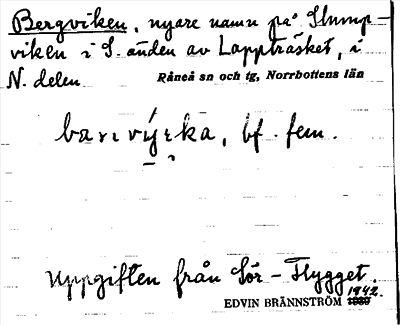 Bergviken, nyare namn på Slump-
viken i S. änden av Lappträsket, i
N. delen
Råneå sn och tg, Norrbottens län
bf. fem.
Uppgiften från Sör-Flygget.
1942.
EDVIN BRÄNNSTRÖM 1939